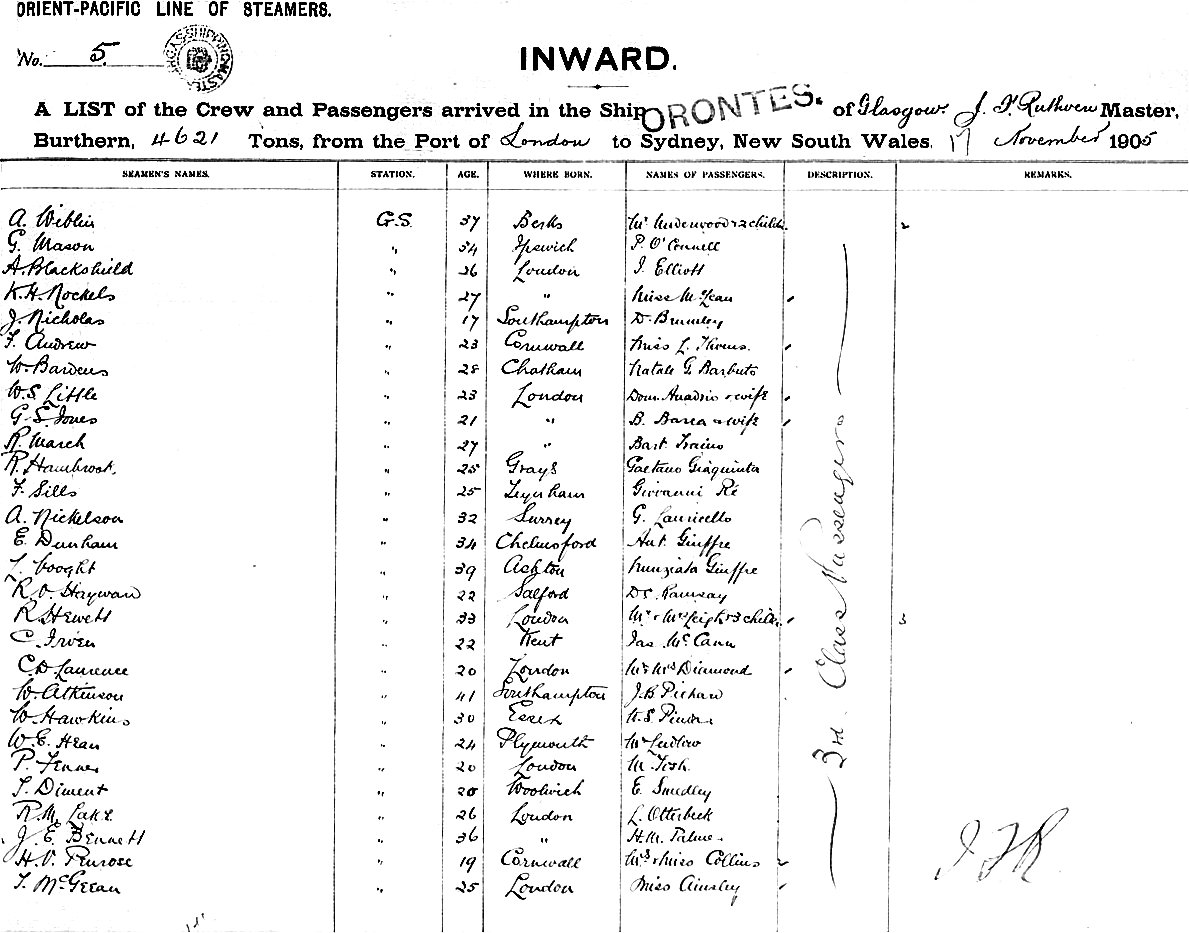 ORIENT-PACIFIC LINE OF STEAMERS.
No. 5
INWARD.
A LIST of the Crew and Passengers arrived in the Ship ORONTES. of Glasgow. J. F. Ruthven Master,
Burthern, 4621 Tons, from the Port of London to Sydney, New South Wales, 17 November 1905
SEAMEN'S NAMES. STATION. AGE. WHERE BORN. NAMES OF PASSENGERS. DESCRIPTION. REMARKS.
A. Wiblin G.S. 37 Berks Mr Underwood & 2 childn. 2
G. Mason " 54 Ipswich P. O'Connell
A. Blackshield " 26 London J. Elliott
K.H. Nockels " 27 " Miss McLean
J. Nicholas " 17 Southampton D. Brumley
F. Andrew " 23 Cornwall Miss L.
W. Bardens " 28 Chatham Natale G Barbuto
W.S. Little " 23 London Dom. & wife
G.S. Jones " 21 " B. Barca & wife
R. March " 27 " Bart. Traino
R. Hambrook. " 25 Grays Gaetano Giaquinta
F. Sills " 25 Teynham Giovanni Ré
A. Nickelson " 32 Surrey G. Lauricello
E. Dunham " 34 Chelmsford Ant. Giuffre
T. Vooght " 39 Ashton Nunziata Giuffre
R.O. Haywan " 22 Salford Dr. Ramsay
R Hewett " 33 London Mr & Mrs Leigh & 3 childn. 3
C. Irven " 22 Kent Jas McCann
C.D. Laurence " 20 London Mr & Mrs Diamond
W. Atkinson " 41 Southampton J.B Pichard
W. Hawkins " 30 Essex H.S.
W.E. Hean " 24 Plymouth Mr Ludlow
P. Fenner " 20 London M. Fish.
T. Diment " 20 Woolwich E. Smedley
R.M. Lake " 26 London L. Otterbeck
J.E. Bennett " 36 " H.M. Palmer
H.V. Penrose " 19 Cornwall Mrs & Miss Collins
T. McGeean " 25 London Miss Ainsley
3rd Class Passengers
JFR